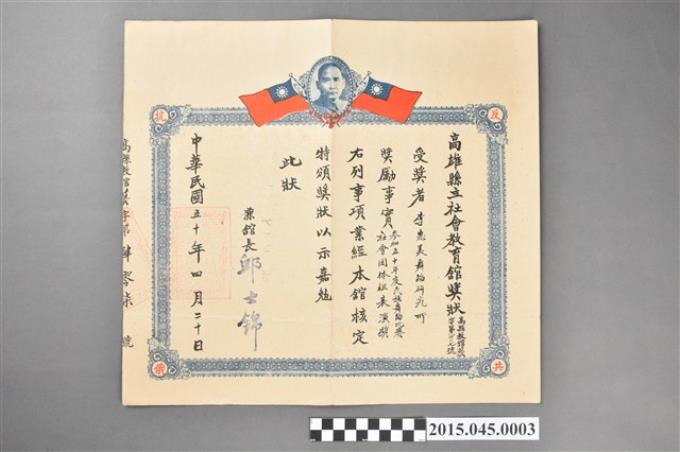 反
共
抗
俄
高雄縣立社會教育館獎狀
受獎者 李彩娥舞蹈研究所
獎勵事實 參加五十年度民族舞蹈比賽
社會團體組表演獎
右列事項業經本館核定
特頒獎狀以示嘉勉
此狀
兼館長 邱士錦
中華民國五十年四月二十日
2015.045.0003